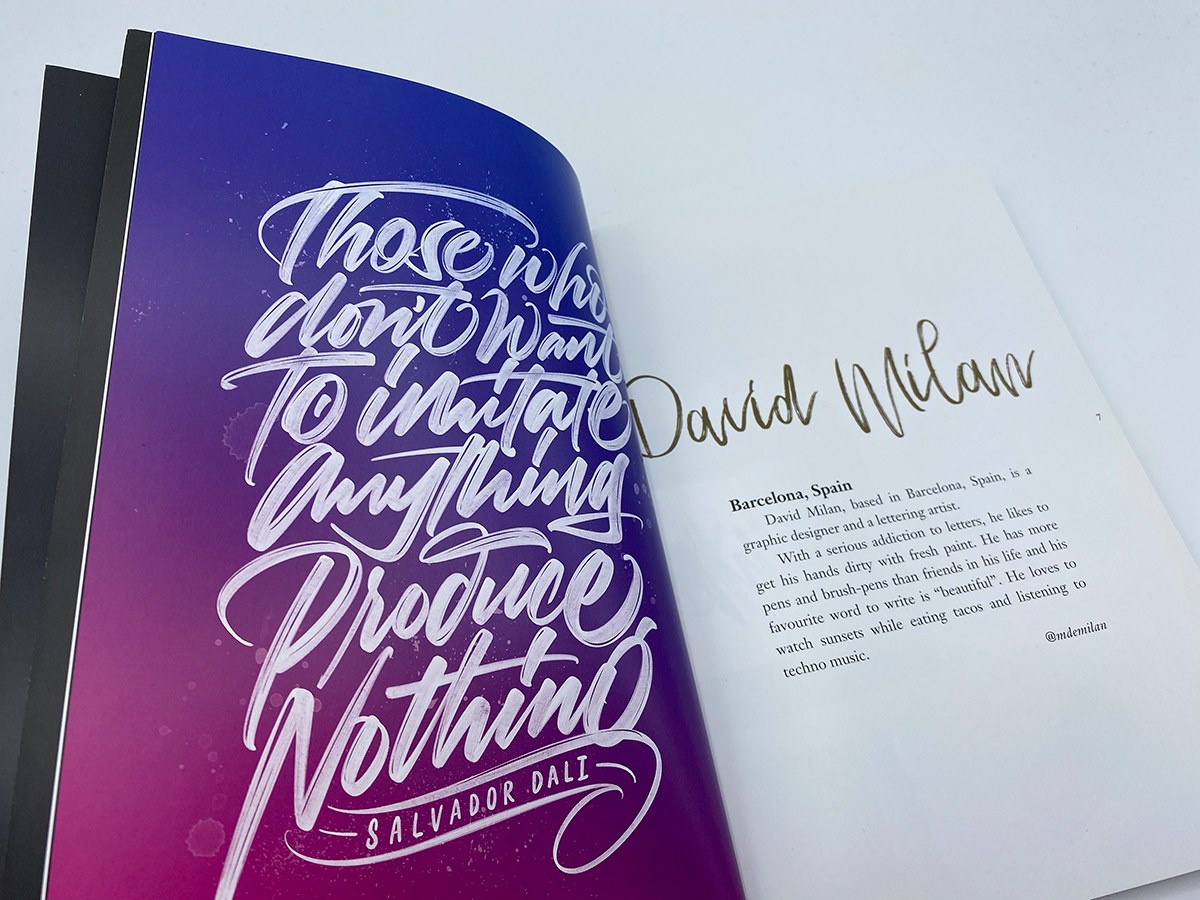 Those who
don't want
To imitate
Anything
Produce
Nothing
SALVADOR DALI
David Milan
7
Barcelona, Spain
David Milan, based in Barcelona, Spain, is a
graphic designer and a lettering artist.
With a serious addiction to letters, he likes to
get his hands dirty with fresh paint. He has more
pens and brush-pens than friends in his life and his
favourite word to write is “beautiful”. He loves to
watch sunsets while eating tacos and listening to
techno music.
@mdemilan